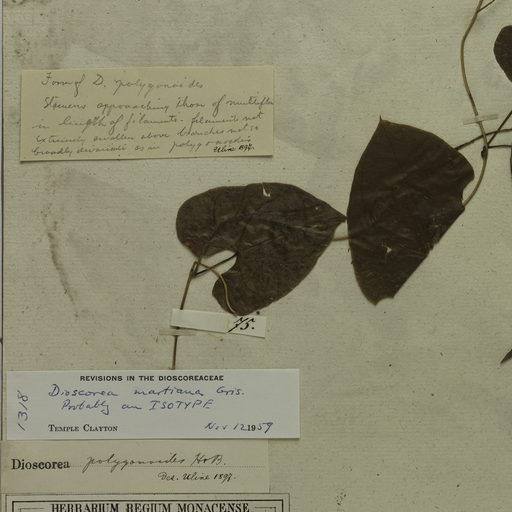 Form of D. polygonoides
Stamens approaching those of multiflora
in length of filaments - filaments not
extremely swollen above branches not so
broadly divaricate as in polygonoides
Uline 1897.
75.
REVISIONS IN THE DIOSCOREACEAE
1318
Dioscorea martiana Gris.
Probably an ISOTYPE
TEMPLE CLAYTON Nov 12 1959
Dioscorea polygonoides H&B.
Det. Uline 1897.
HERBARIUM REGIUM MONACENSE